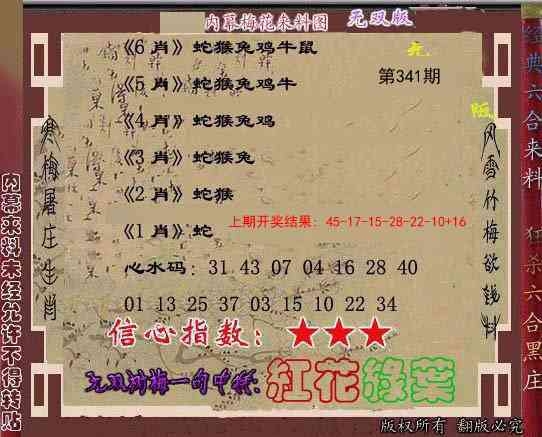 内幕梅花来料图 无双版
《6 肖》蛇猴兔鸡牛鼠
无
第341期
《5 肖》蛇猴兔鸡牛
《4 肖》蛇猴兔鸡
《3 肖》蛇猴兔
《2 肖》蛇猴
上期开奖结果：45-17-15-28-22-10+16
《1 肖》蛇
心水码：31 43 07 04 16 28 40
01 13 25 37 03 15 10 22 34
信心指数：★★★
红花绿葉
版权所有 翻版必究
寒梅屠庄生肖
内幕来料未经允许不得转贴
风雪竹梅欲钱料
经典六合来料 狂杀六合黑庄